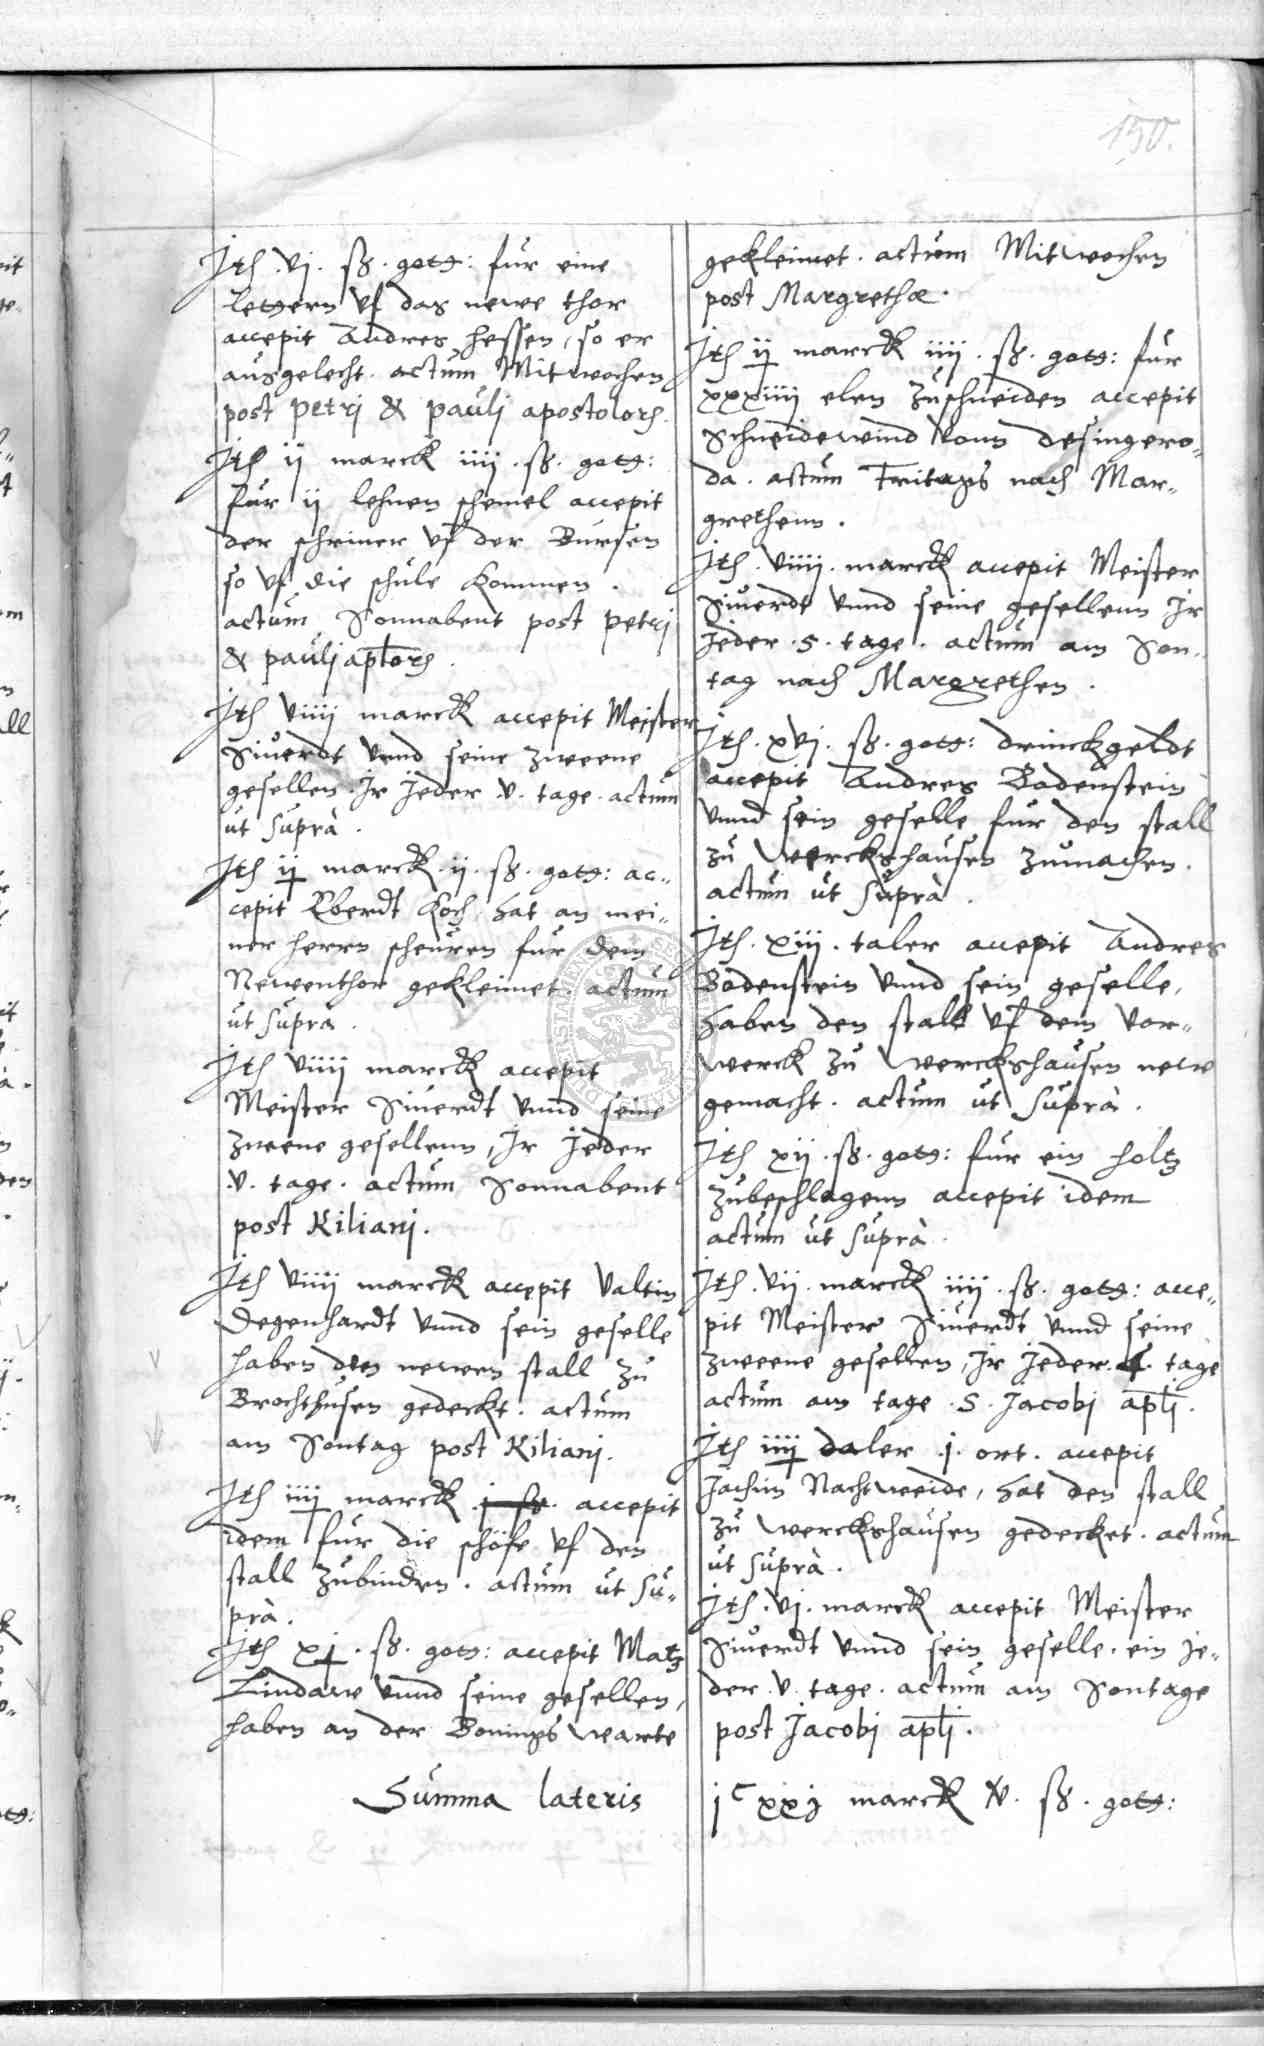 150.
Jtẽ .vj. ß. gotg: fur eine
letgern vf das newe thor
accepit Andres Hessen, so er
ausgelecht. actum Mitwochen
post Petrj & Paulj apostolorũ.
Jtẽ ij marck iiij .ß. gotg:
fur ij lehnen schemel accepit
der schriner vf der Bursen
so vf die schule kommen.
actum Sonnabent post Petrj
& Paulj aplorũ.
Jtẽ viiij marck accepit Meister
Siuerdt vnnd seine zweene
gesellen. Jr Jeder .v. tage. actum
ut supra.
Jtẽ ij marck .ij. ß. gotg: ac„
cepit Eberdt Koch, hat an mei„
ner herrn scheuren fur dem
Newenthor gekleimet. actum
ut supra.
Jtẽ viiij marck accepit
Meister Siuerdt vnnd seine
zweene gesellenn, Jr Jeder
.v. tage. actum Sonnabent
post Kilianj.
Jtẽ viiij marck accepit Valtin
Degenhardt vnnd sein geselle
haben den newen stall zu
Brochthusen gedeckt. actum
am Sontag post Kilianj.
Jtẽ iiij marck j ß. accepit
idem fur die schöfe vf den
stall zubinden. actum ut su„
pra.
Jtẽ xj .ß. gotg: accepit Matz
Lindaw vnnd seine gesellen,
haben an der Bonings warte
Summa lateris
gekleimet. actum Mitwochen
post Margrethæ.
Jtẽ ij marck iiij .ß. gotg: fur
xxxiiij elen zuschneiden accepit
Schneidewind vonn Desingero„
da. actum Fritags nach Mar„
grethenn.
Jtẽ .viiij. marck accepit Meister
Siuerdt vnnd seine gesellenn Jr
Jeder .5. tage. actum am Son„
tag nach Margrethen.
Jtẽ .xvj. ß. gotg: drinckgeldt
accepit Andres Bodenstein
vnnd sein geselle fur den stall
zu Werckshausen zumachen.
actum ut supra.
Jtẽ .xiij. taler accepit Andres
Bodenstein vnnd sein geselle,
haben den stall vf dem vor„
werck zu Werckshausen new
gemacht. actum ut supra.
Jtẽ xij .ß. gotg: fur ein holtz
zubeschlagenn accepit idem
actum ut supra.
Jtẽ .vij. marck iiij .ß. gotg: acce„
pit Meister Siuerdt vnnd seine
zweene gesellen, Jr Jeder .4. tage
actum am tage .S. Jacobj aplj.
Jtẽ iiij daler .j. ort. accepit
Jachim Nachtweide, hat den stall
zu Werckshausen gedecket. actum
ut supra.
Jtẽ .vj. marck accepit Meister
Siuerdt vnnd sein geselle. ein Je„
der .v. tage. actum am Sontage
post Jacobj aplj.
jᶜ xxj marck v. ß. gotg: